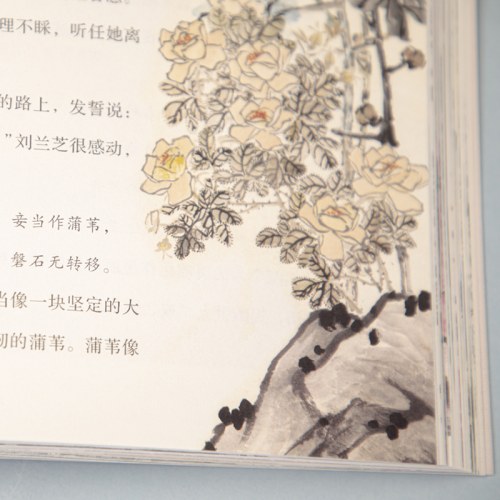 理不睬，听任她离
的路上，发誓说：
”刘兰芝很感动，
妾当作蒲苇，
磐石无转移。
当像一块坚定的大
韧的蒲苇。蒲苇像